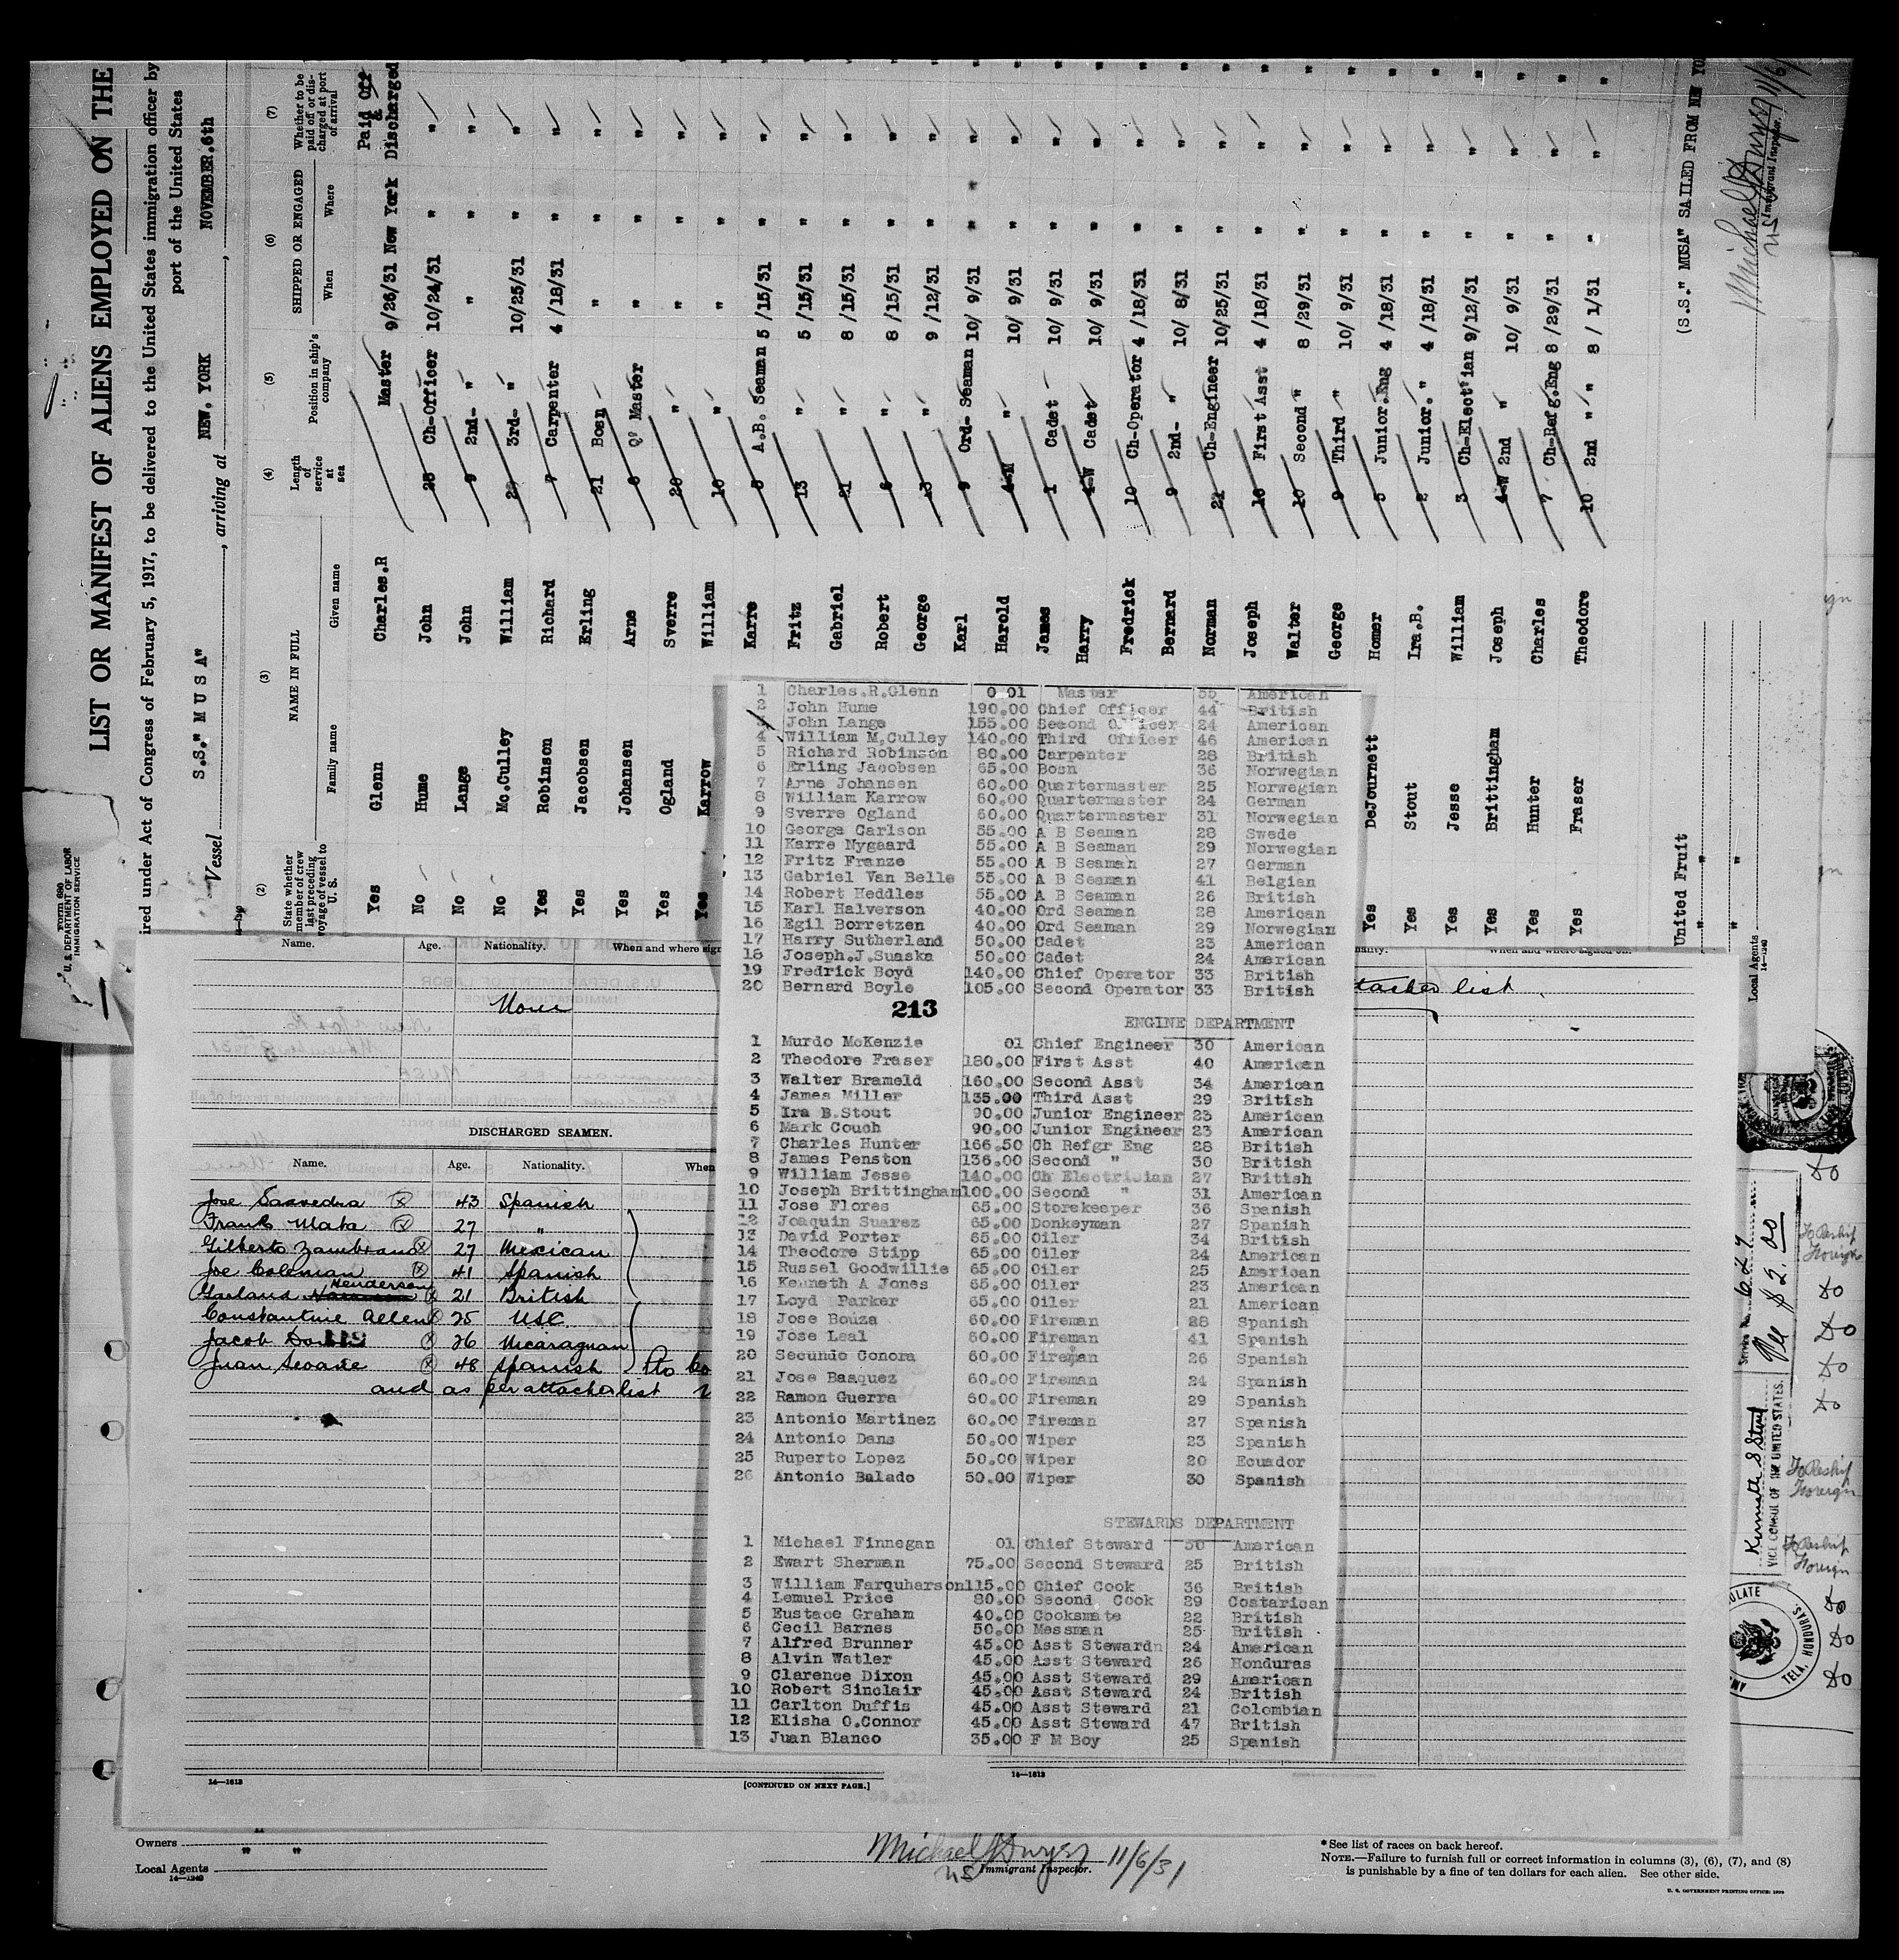 LIST OR MANIFEST OF ALIENS EMPLOYED ON THE
ired under Act of Congress of February 5, 1917, to be delivered to the United States immigration officer by
port of the United States
Vessel S.S." M U S A" , arriving at NEW. YORK NOVEMBER.6th ,
FORM 680
U. S. DEPARTMENT OF LABOR
IMMIGRATION SERVICE
(2) (3) (4) (5) (6) (7)
State whether member of crew last preceding voyage of vessel to U. S.
NAME IN FULL
Family name Given name
Length of service at sea
Position in ship's company
SHIPPED OR ENGAGED
When Where
Whether to be paid off or discharged at port of arrival
Yes Glenn Charles.R Master 9/26/31 New York Paid Off & Discharged
No Hume John 25 Ch-Officer 10/24/31 " "
No Lange John 9 2nd- " " " "
No Mc.Culley William 3rd- " 10/25/31 " "
Yes Robinson Richard 7 Carpenter 4 /18/31 " "
Yes Jacobsen Erling 21 Bosn " " "
Yes Johansen Arne 8 Qr Master " " "
Yes Ogland Sverre 20 " " " "
Yes Karrow William 10 " " " "
Karre 5 A.B. Seaman 5 /15/31 " "
Fritz 13 " 5 /15/31 " "
Gabriel 21 " 8 /15/31 " "
Robert 6 " 8 /15/31 " "
George 13 " 9 /12/31 " "
Karl 9 Ord- Seaman 10/ 9/31 " "
Harold 4-M " 10/ 9/31 " "
James 1 Cadet 10/ 9/31 " "
Harry 4-W Cadet 10/ 9/31 " "
Fredrick 10 Ch-Operator 4 /18/31 " "
Bernard 9 2nd- " 10/ 8/31 " "
Norman 21 Ch-Engineer 10/25/31 " "
Joseph 16 First Asst 4 /18/31 " "
Walter 10 Second " 8 /29/31 " "
George 9 Third " 10/ 9/31 " "
Yes DeJournett Homer 5 Junior.Eng 4 /18/31 " "
Yes Stout Ira.B. 2 Junior. " 4 /18/31 " "
Yes Jesse William 3 Ch-Elect'ian 9/12/31 " "
Yes Brittingham Joseph 4-W 2nd " 10/ 9/31 " "
Yes Hunter Charles 7 Ch-Refg.Eng 8 /29/31 " "
Yes Fraser Theodore 10 2nd " " 8 / 1/31 " "
(S.S." MUSA" SAILED FROM NEW YO
United Fruit
" "
Local Agents
14—1240
Michael J Dwyer 11/6/
US Immigrant Inspector.
1 Charles.R.Glenn 0 01 Master 55 American
2 John Hume 190.00 Chief Officer 44 British
3 John Lange 155.00 Second Officer 24 American
4 William M.Culley 140.00 Third Officer 46 American
5 Richard Robinson 80.00 Carpenter 28 British
6 Erling Jacobsen 65.00 Bosn 36 Norwegian
7 Arne Johansen 60.00 Quartermaster 25 Norwegian
8 William Karrow 60.00 Quartermaster 24 German
9 Sverre Ogland 60.00 Quartermaster 31 Norwegian
10 George Carlson 55.00 A B Seaman 28 Swede
11 Karre Nygaard 55.00 A B Seaman 29 Norwegian
12 Fritz Franze 55.00 A B Seaman 27 German
13 Gabriel Van Belle 55.00 A B Seaman 41 Belgian
14 Robert Heddles 55.00 A B Seaman 26 British
15 Karl Halverson 40.00 Ord Seaman 28 American
16 Egil Borretzen 40.00 Ord Seaman 29 Norwegian
17 Harry Sutherland 50.00 Cadet 23 American
18 Joseph.J.Suaska 50.00 Cadet 24 American
19 Fredrick Boyd 140.00 Chief Operator 33 British
20 Bernard Boyle 105.00 Second Operator 33 British
213
ENGINE DEPARTMENT
1 Murdo McKenzie 01 Chief Engineer 30 American
2 Theodore Fraser 180.00 First Asst 40 American
3 Walter Brameld 160.00 Second Asst 34 American
4 James Miller 135.00 Third Asst 29 British
5 Ira B.Stout 90.00 Junior Engineer 23 American
6 Mark Couch 90.00 Junior Engineer 23 American
7 Charles Hunter 166.50 Ch Refgr Eng 28 British
8 James Penston 136.00 Second " 30 British
9 William Jesse 140.00 Ch Electrician 27 British
10 Joseph Brittingham 100.00 Second " 31 American
11 Jose Flores 65.00 Storekeeper 36 Spanish
12 Joaquin Suarez 65.00 Donkeyman 27 Spanish
13 David Porter 65.00 Oiler 34 British
14 Theodore Stipp 65.00 Oiler 24 American
15 Russel Goodwillie 65.00 Oiler 25 American
16 Kenneth A Jones 65.00 Oiler 23 American
17 Loyd Parker 65.00 Oiler 21 American
18 Jose Bouza 60.00 Fireman 28 Spanish
19 Jose Leal 60.00 Fireman 41 Spanish
20 Secundo Conora 60.00 Fireman 26 Spanish
21 Jose Basquez 60.00 Fireman 24 Spanish
22 Ramon Guerra 60.00 Fireman 29 Spanish
23 Antonio Martinez 60.00 Fireman 27 Spanish
24 Antonio Dans 50.00 Wiper 23 Spanish
25 Ruperto Lopez 50.00 Wiper 20 Ecuador
26 Antonio Balado 50.00 Wiper 30 Spanish
STEWARDS DEPARTMENT
1 Michael Finnegan 01 Chief Steward 50 American
2 Ewart Sherman 75.00 Second Steward 25 British
3 William Farquharson 115.00 Chief Cook 36 British
4 Lemuel Price 80.00 Second Cook 29 Costarican
5 Eustace Graham 40.00 Cooksmate 22 British
6 Cecil Barnes 50.00 Messman 25 British
7 Alfred Brunner 45.00 Asst Stewardn 24 American
8 Alvin Watler 45.00 Asst Steward 26 Honduras
9 Clarence Dixon 45.00 Asst Steward 29 American
10 Robert Sinclair 45.00 Asst Steward 24 British
11 Carlton Duffis 45.00 Asst Steward 21 Colombian
12 Elisha O.Connor 45.00 Asst Steward 47 British
13 Juan Blanco 35.00 F M Boy 25 Spanish
Name. Age. Nationality. When and where sign
None
When and where signed on.
tached list
DISCHARGED SEAMEN.
Name. Age. Nationality. When
Jose Saavedra 43 Spanish
Frank Mata 27 "
Gilberto Zambrano 27 Mexican
Joe Coleman 41 Spanish
Garland Henderson 21 British
Constantine Allen 25 USC
Jacob 26 Nicaraguan
Juan Seoane 48 Spanish
and as per attached list
119
14—1613
[CONTINUED ON NEXT PAGE.]
14—1613
Service No. 627
Fee $2.00
VICE CONSUL OF THE UNITED STATES.
TELA, HONDURAS.
Do
To Reship Foreign
Do
Do
Do
Do
To Reship Foreign
To Reship Foreign
Do
Do
Do
Owners
Local Agents " "
14—1240
Michael J Dwyer 11/6/31
US Immigrant Inspector.
* See list of races on back hereof.
NOTE.—Failure to furnish full or correct information in columns (3), (6), (7), and (8)
is punishable by a fine of ten dollars for each alien. See other side.
U. S. GOVERNMENT PRINTING OFFICE